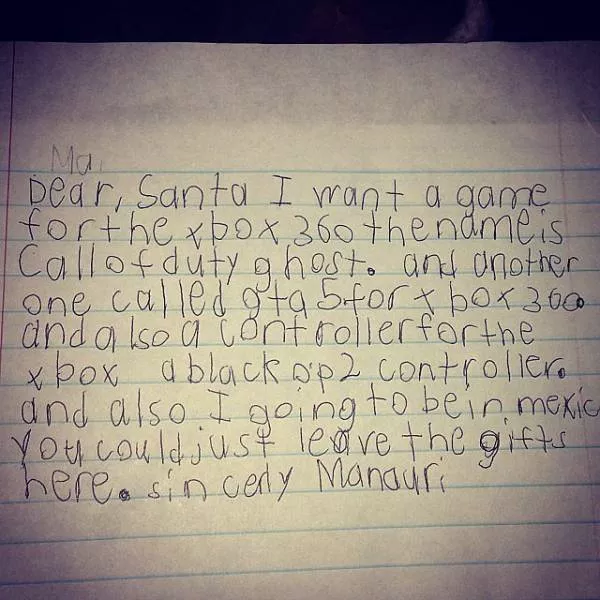 Ma
Dear, Santa I want a game
for the xbox 360 the name is
Call of duty ghost. and another
one called gta 5 for xbox 360
and also a controller for the
xbox a black op2 controller.
and also I going to be in mexic
You could just leave the gifts
here. sin cerly Manauri